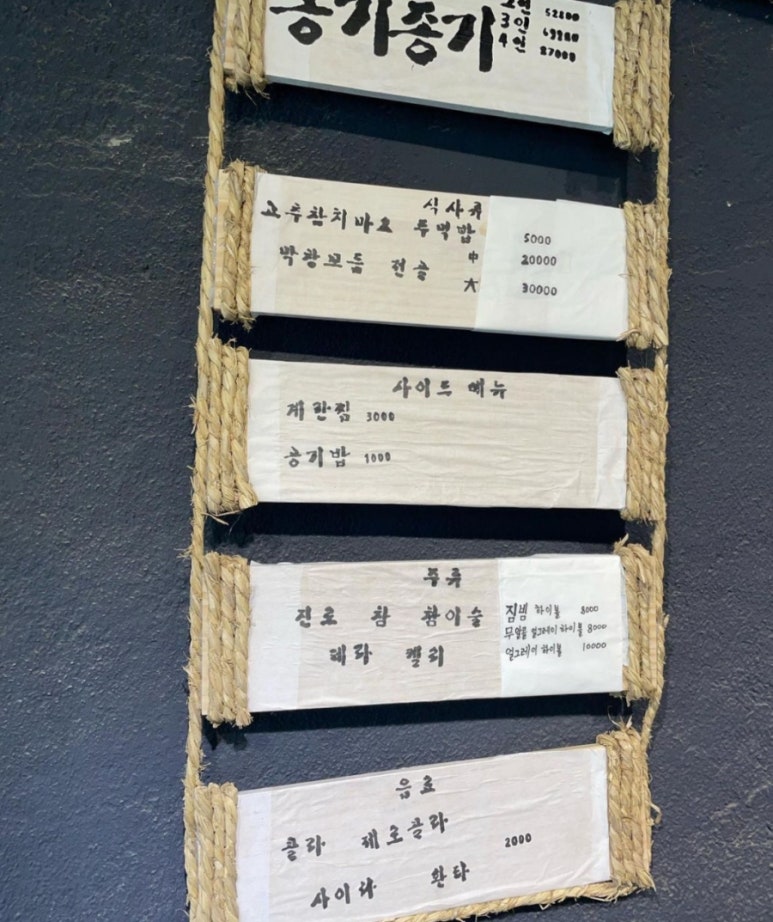 공기종기
2인 52800
3인 69900
4인 87000
식사류
고추참치마요 주먹밥 5000
박광모듬 전골 中 20000
大 30000
사이드 메뉴
계란찜 3000
공기밥 1000
주류
진로 참 참이슬
테라 켈리
짐빔 하이볼 8000
무알콜 얼그레이 하이볼 8000
얼그레이 하이볼 10000
음료
콜라 제로콜라
2000
사이다 환타